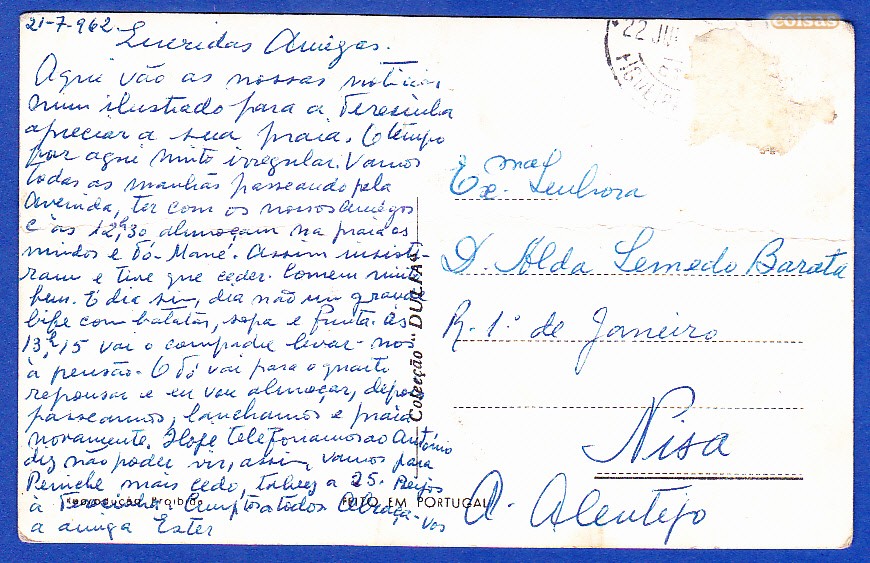 21-7-962
Queridas Amigas.
Aqui vão as nossas notícias
num ilustrado para a Teresinha
apreciar a sua praia. O tempo
por aqui muito irregular. Vamos
todas as manhãs passeando pela
Avenida, ter com os nossos amigos
e às 12,h30 almoçam na praia os
miudos e Tó-Mané. Assim insisti-
ram e tive que ceder. Comem muito
bem. E dia sim, dia não um grande
bife com batatas, sopa e fruta. às
13,h15 vai o compadre levar-nos
à pensão. O Tó vai para o quarto
repousar e eu vou almoçar, depois
passeamos, lanchamos e praia
novamente. Hoje telefonamos ao António
diz não poder vir, assim vamos para
Peniche mais cedo, talvez a 25. Beijos
à Teresinha, Cumptos a todos Abraça-vos
a amiga Ester
Colecção "DULIA"
Reprodução Proibida
FEITO EM PORTUGAL
coisas
22 JUL
Exma Senhora
D. Alda Semedo Barata
R. 1º de Janeiro
Nisa
A. Alentejo